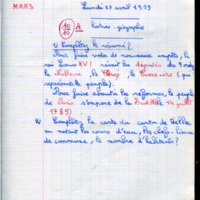 MARS
Lundi 29 avril 1999
10/10 A
Histoire - géographie
1) Complétez le résumé ?
Pour faire voter de nouveaux impôts, le
roi Louis XVI réunit les députés des 3 ordres
la Noblesse, le Clergé, le Tiers-état (qui
représente le peuple).
Pour faire aboutir les réformes, le peuple
de Paris s'empare de la Bastille
1789)
2) Complétez la carte du canton de
en notant les cours d'eau, les chefs-lieux
de commune, le nombre d'habitants ?